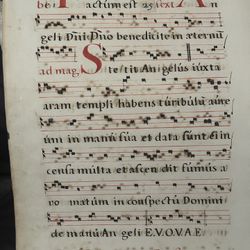 factum est
geli Dñi Dño benedicite in æternũ
ad mag. Stetit Angelus iuxta
aram templi habens turibulũ aure
um in manu sua et data sunt ei in
censa multa et ascendit fumus a
romatum in conspectu Domini
de manu Angeli E.V.O.V.A.E.